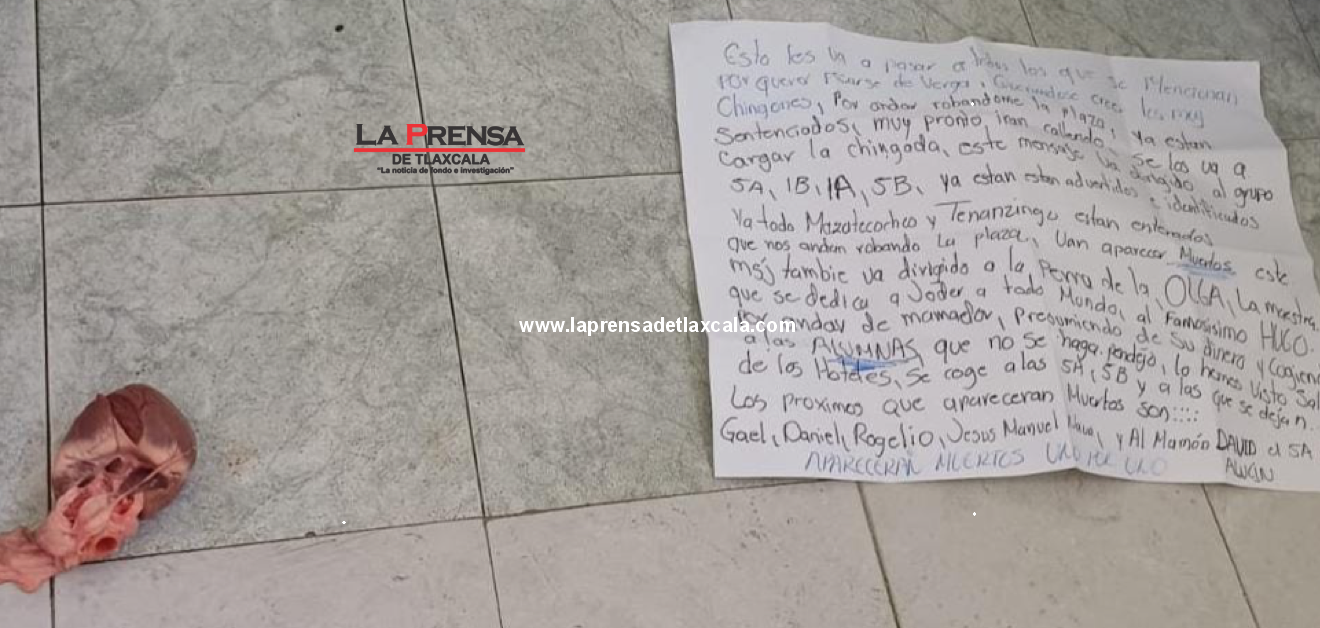 LA PRENSA
DE TLAXCALA
"La noticia de fondo e investigación"
Esto les va a pasar a todos los que se Mencionan
Por querer de Verga, Creerse los muy
Chingones, Por andar robandome la plaza, ya estan
Sentenciados, muy pronto iran callendo, se los va a
Cargar la chingada, este mensaje va dirigido al grupo
5A, 1B, 1A, 5B, ya estan estan advertidos e identificados
Ya todo Mazatecochco y Tenanzingo estan enterados
que nos andan robando la plaza, Van aparecer Muertos este
msj tambie va dirigido a la Perra de la OLGA, La maestra
que se dedica a Joder a todo Mundo, al Famosisimo HUGO.
Por andar de mamador, Presumiendo de su dinero y Cogien
a las ALUMNAS que no se haga pendejo, lo hemos Visto Sal
de los Hoteles, Se coge a las 5A, 5B y a las que se dejan.
Los proximos que apareceran Muertos son::::
Gael, Daniel, Rogelio, Jesus Manuel Nava, y Al Mamón DAVID el 5A
APARECERAN MUERTOS UNO POR UNO
www.laprensadetlaxcala.com